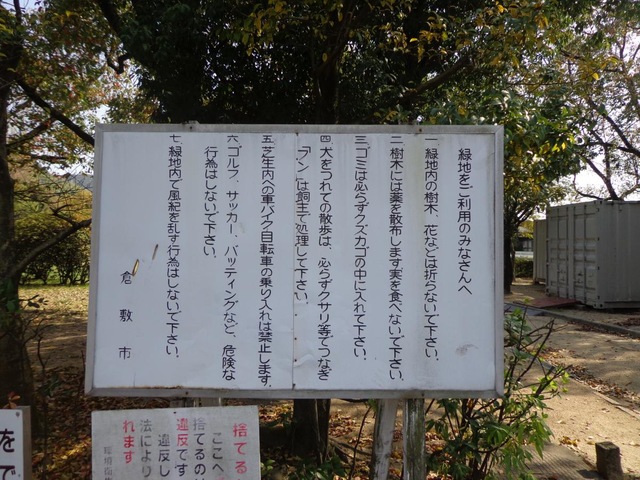 緑地をご利用のみなさんへ
一 緑地内の樹木、花などは折らないで下さい。
二 樹木には薬を散布します実を食べないで下さい。
三 ゴミは必らずクズカゴの中に入れて下さい。
四 犬をつれての散歩は、必らずクサリ等でつなぎ
「フン」は飼主で処理して下さい。
五 芝生内への車バイク自転車の乗り入れは禁止します。
六 ゴルフ、サッカー、バッティングなど、危険な
行為はしないで下さい。
七 緑地内で風紀を乱す行為はしないで下さい。
倉敷市
捨てる
ここへ
捨てるのは
違反です
違反し
法により
れます
をで